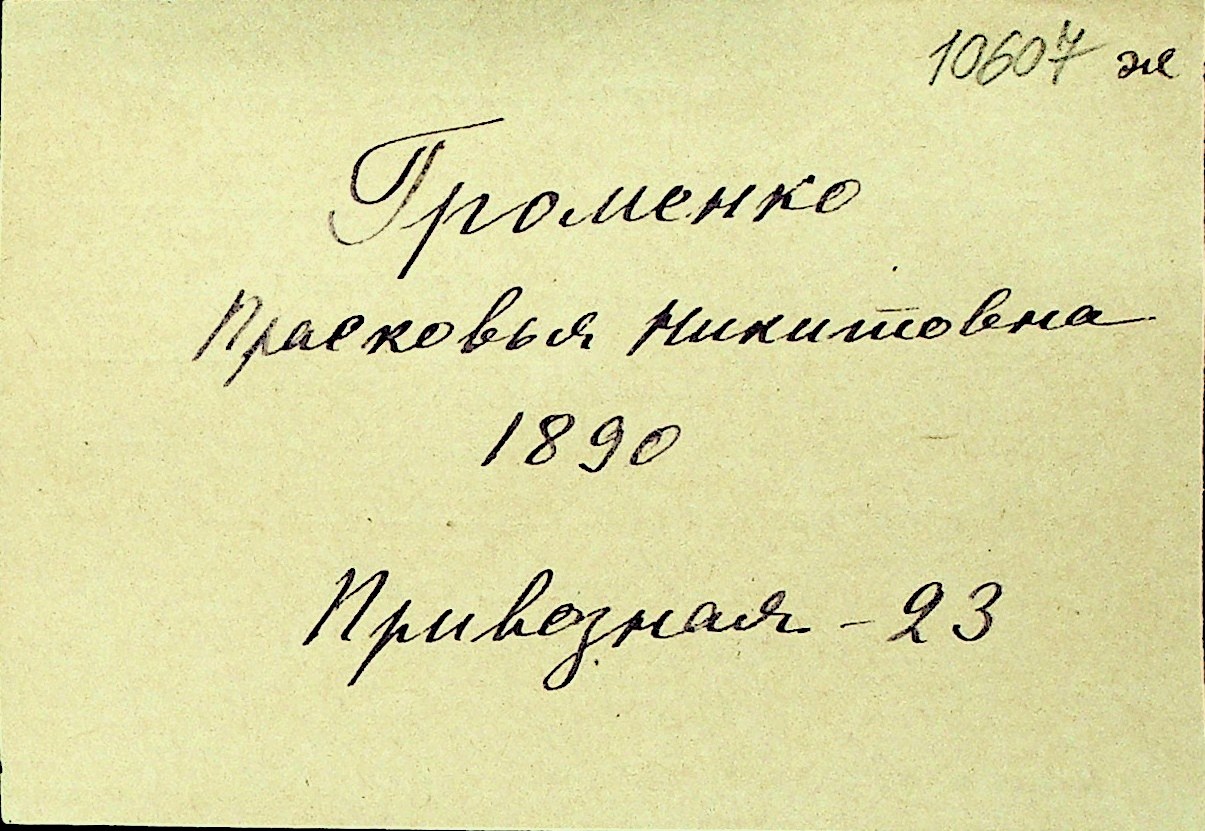 10607 ж
Громенко
Прасковья Никитовна
1890
Привозная - 23